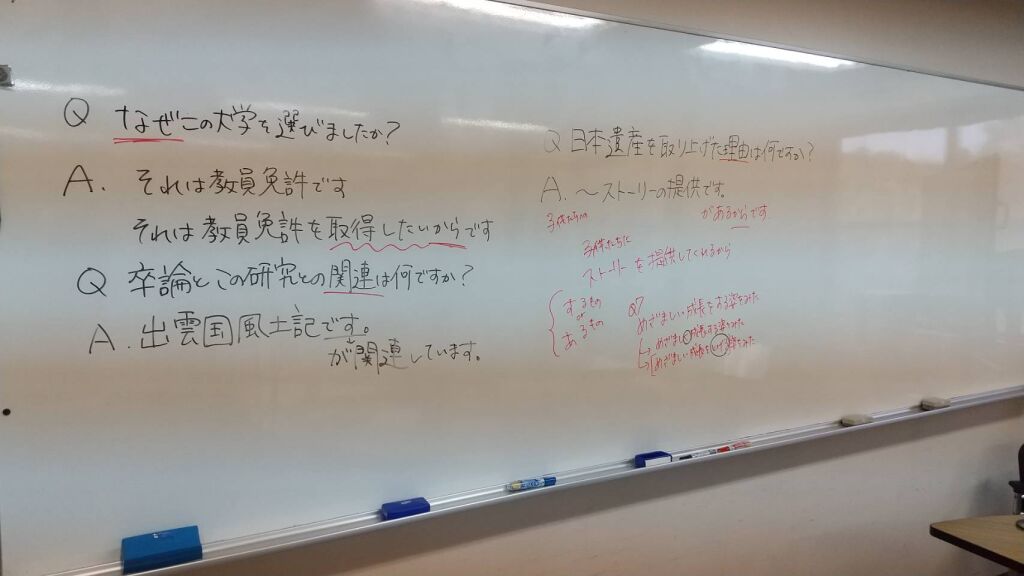 Q なぜこの大学を選びましたか?
A. それは教員免許です
それは教員免許を取得したいからです
Q 卒論とこの研究との関連は何ですか?
A. 出雲国風土記です。
が関連しています。
Q 日本遺産を取り上げた理由は何ですか?
A. 〜ストーリーの提供です。
子供たちへ
があるからです
子供たちに
ストーリーを提供してくれるから
するもの
あるもの
Q7
めざましい成長をする姿をみた
めざましい成長する姿をみた
めざましい成長を